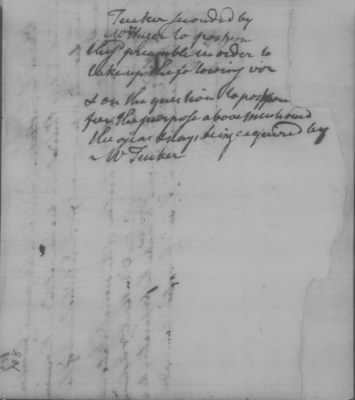 Tucker seconded by
Mr to postpon
this preamble in order to
take up the following vor
& on the question to postpon
for the purpose above mentioned
the yeas & nays being required by
Mr Tucker